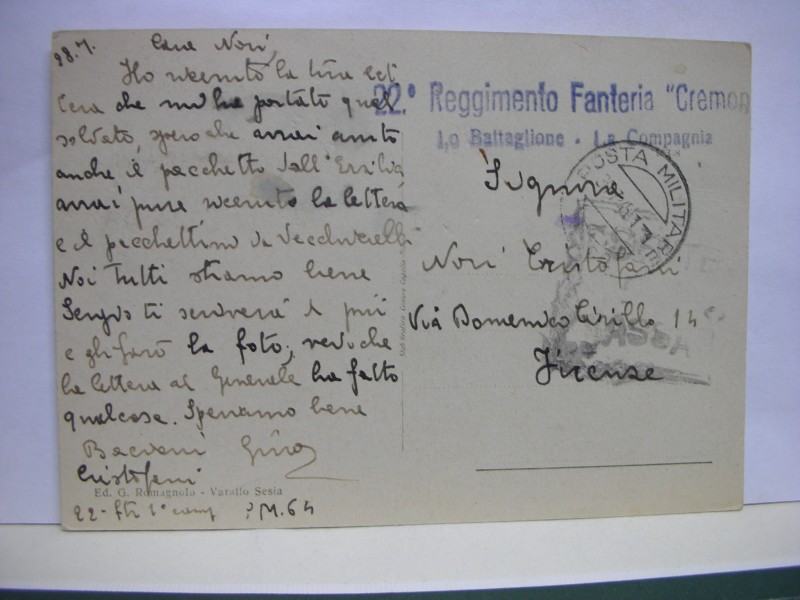 28.7. Cara Nori,
Ho ricevuto la tua let
tera che mi ha portato quel
soldato, spero che avrai avuto
anche il pacchetto dall'Ersilia
avrai pure ricevuto la lettera
e il pacchettino da Vecchiarelli
Noi tutti stiamo bene
Sergio ti scriverà di più
e gli farò la foto; vedo che
la lettera al Generale ha fatto
qualcosa. Speriamo bene
Bacioni Gino
Cristofani
Ed. G. Romagnolo - Varallo Sesia
22- ftr 1ª comp P.M. 64
22.º Reggimento Fanteria "Cremon
1.o Battaglione - 1.a Compagnia
POSTA MILITARE
Signora
Nori Cristofani
Via Domenico Cirillo 14
Firenze
TASSA